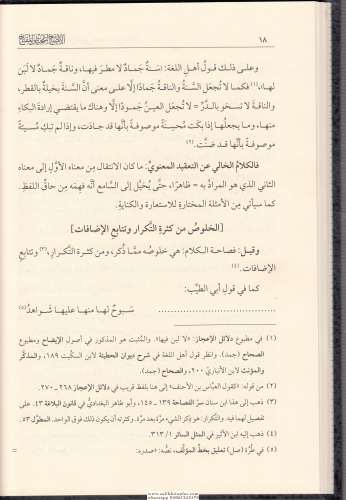 ١٨
وعلى ذلك قولُ أهلِ اللغة: سَنةٌ جَمادٌ لا مطرَ فيها، وناقةٌ جَمادٌ لا لبَن
لها،(١) فكما لا تُجعلُ السنةُ والناقةُ جَمادًا إلَّا على معنى أنَّ السنةَ بخيلةٌ بالقطر،
والناقةَ لا تسخو بالدَّرِّ = لا تُجعل العينُ جَمودًا إلَّا وهناك ما يقتضي إرادةَ البكاءِ
منها، وما يجعلُها إذا بكَت مُحسِنةً موصوفةً بأنَّها قد جادَت، وإذا لم تبكِ مُسيئةً
موصوفةً بأنَّها قد ضنَّت.(٢)
فالكلامُ الخالي عن التعقيد المعنويِّ: ما كان الانتقال مِن معناه الأوَّلِ إلى معناه
الثاني الذي هو المرادُ به = ظاهرًا، حتَّى يُخيَّل إلى السامعِ أنَّه فهِمَه مِن حاقِّ اللفظِ.
كما سيأتي مِن الأمثلة المختارةِ للاستعارة والكناية.
[الخلوصُ من كثرةِ التَّكرار وتتابعِ الإضافات]
وقيل: فصاحة الكلام: هي خلوصُه ممَّا ذُكر، ومن كثرة التَّكرارِ،(٣) وتتابعِ
الإضافات.(٤)
كما في قولِ أبي الطيِّب:
........................ سَبوحٌ لها منها عليها شَواهدُ(٥)
(١) في مطبوع دلائل الإعجاز: «لا لبن فيها». والمثبت هو المذكور في أصول الإيضاح ومطبوع
الصحاح (جمد). وانظر قول أهل اللغة في شرح ديوان الحطيئة لابن السكِّيت ١٨٩، والمذكَّر
والمؤنث لابن الأنباريِّ ٢٠٠، والصحاح (جمد).
(٢) من قوله: «كقول العبَّاس بن الأحنف» إلى هنا بلفظ قريب في دلائل الإعجاز ٢٦٨-٢٧٠.
(٣) ذهب إلى هذا ابن سنان سرّ الفصاحة ١٣٩-١٤٥، وأبو طاهر البغداديُّ في قانون البلاغة ٤٣. على
تفصيل لهما فيه. والتَّكرار: هو ذكر الشيء مرَّة بعد مرَّة. وكثرته أن يكون ذلك فوق الواحد. المطوَّل ٥٣.
(٤) ذهب إليه ابن الأثير في المثل السائر ١/ ٣١٣.
(٥) في طُرَّة (صل) تعليق بخطِّ المؤلِّف، نصُّه: «صدره: =